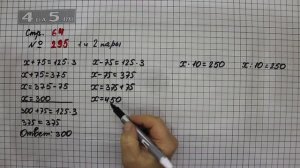 4 5
Стр. 64
№ 295 1 и 2 пары
x+75=125·3
x+75=375
x=375-75
x=300
300+75=125·3
375=375
Ответ: 300
x-75=125·3
x-75=375
x=375+75
x=450
x·10=250
x:10=250